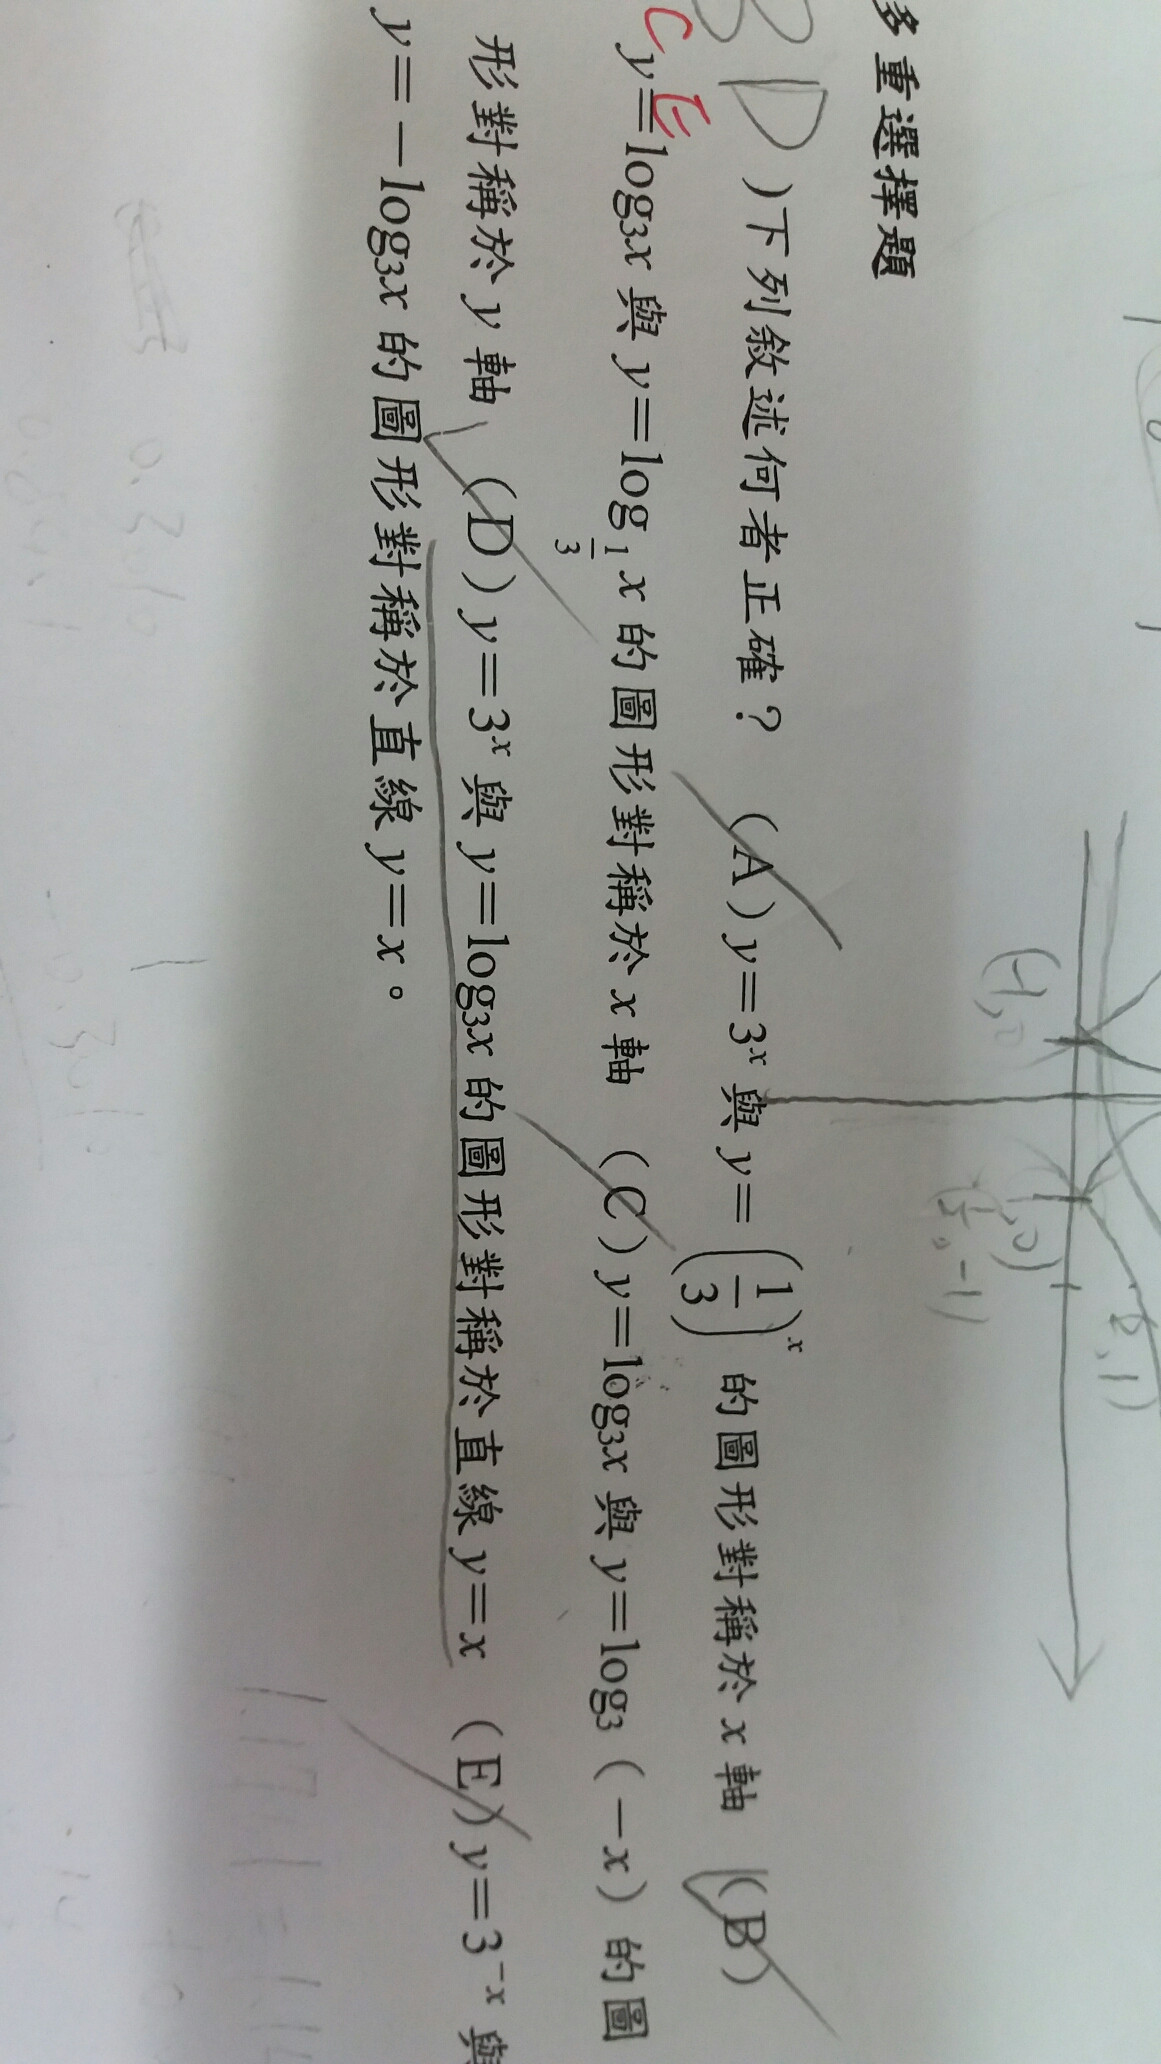 多重選擇題
BD )下列敘述何者正確? (A) y=3ˣ 與 y=(1/3)ˣ 的圖形對稱於 x 軸 (B)
CE
y=log₃x 與 y=log_{1/3} x 的圖形對稱於 x 軸 (C) y=log₃x 與 y=log₃(-x) 的圖
形對稱於 y 軸 (D) y=3ˣ 與 y=log₃x 的圖形對稱於直線 y=x (E) y=3⁻ˣ 與
y=-log₃x 的圖形對稱於直線 y=x。